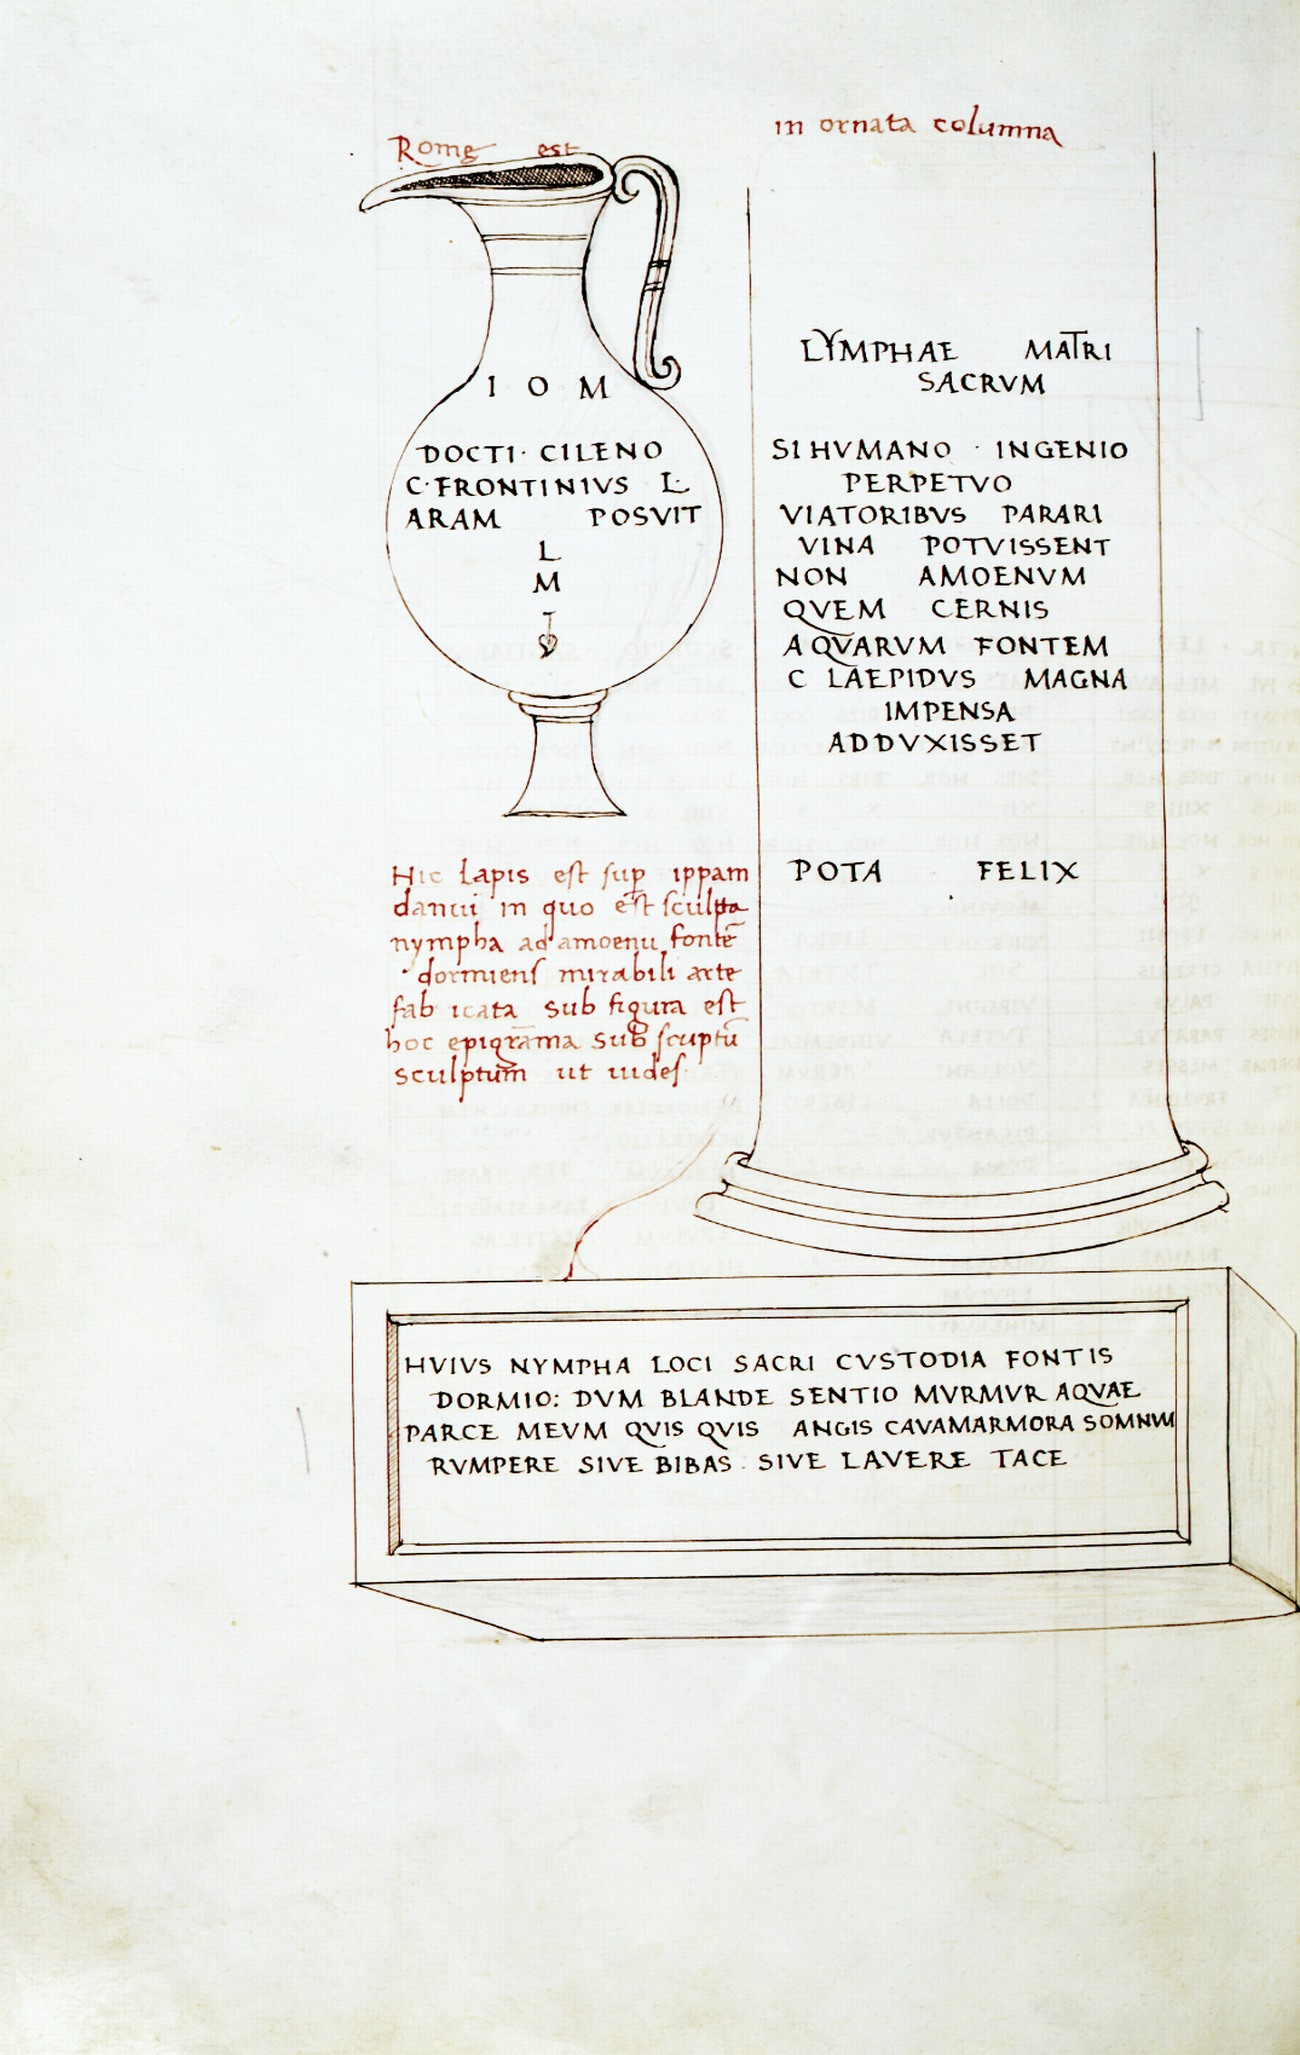 Romę est
I O M
DOCTI · CILENO
C · FRONTINIVS L ·
ARAM POSVIT
L
M
in ornata columna
LYMPHAE MATRI
SACRVM
SI HVMANO · INGENIO
PERPETVO
VIATORIBVS PARARI
VINA POTVISSENT
NON AMOENVM
QVEM CERNIS
AQVARVM FONTEM
C LAEPIDVS MAGNA
IMPENSA
ADDVXISSET
POTA FELIX
Hic Lapis est sup̱ ippam
danui in quo est sculpta
nympha ad amoenu fontē
dormiens mirabili arte
fab icata sub figura est
hoc epigrāma sub scuptū
sculptum ut uides ·
HVIVS NYMPHA LOCI SACRI CVSTODIA FONTIS
DORMIO: DVM BLANDE SENTIO MVRMVR AQVAE
PARCE MEVM QVIS QVIS ANGIS CAVAMARMORA SOMNVM
RVMPERE SIVE BIBAS · SIVE LAVERE TACE